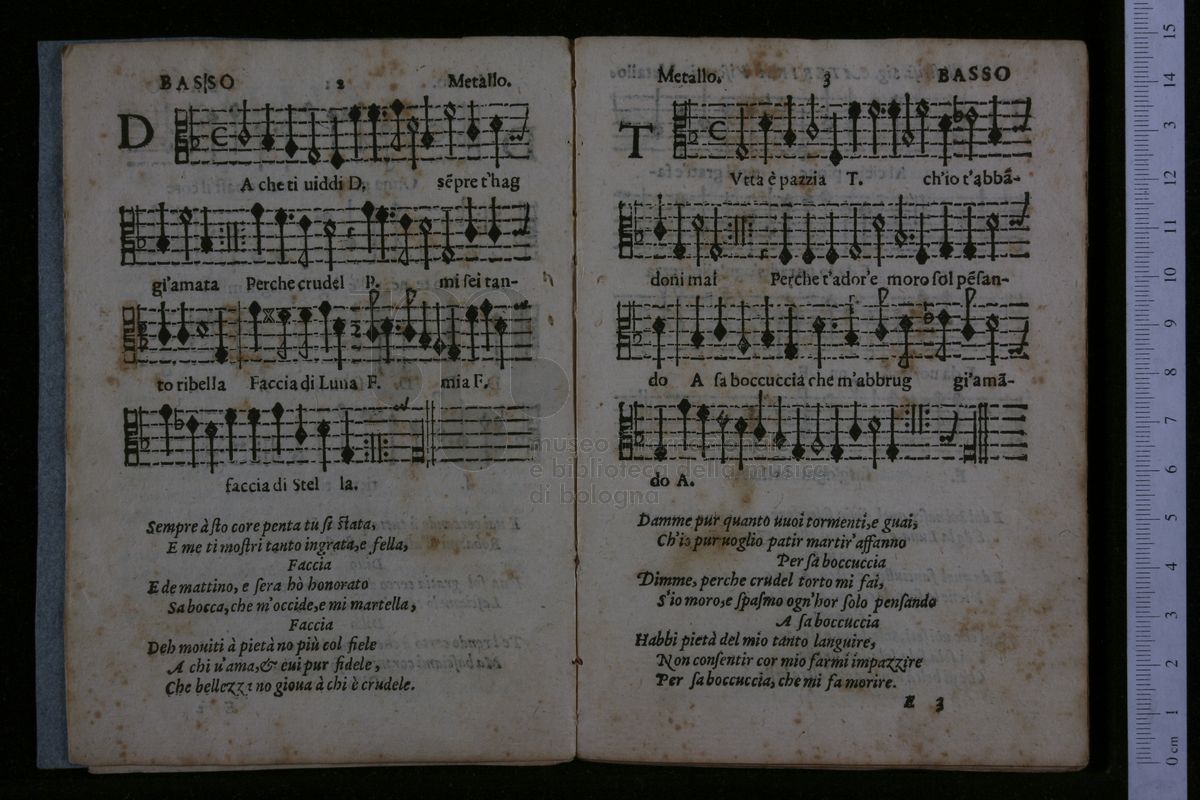 BASSO 2 Metallo.
D
A che ti uiddi D, sẽpre t'hag
gi'amata Perche crudel P. mi sei tan-
to ribella Faccia di Luna F. mia F.
faccia di Stel la.
Sempre à sto core penta tu si stata,
E me ti mostri tanto ingrata, e fella,
Faccia
E de mattino, e sera hò honorato
Sa bocca, che m'occide, e mi martella,
Faccia
Deh mouiti à pietà no più col fiele
A chi u'ama, & eui pur fidele,
Che bellezza no gioua à chi è crudele.
Metallo. 3 BASSO
T
Vtta è pazzia T. ch'io t'abbã-
doni mai Perche t'ador'e moro sol pẽsan-
do A sa boccuccia che m'abbrug gi'amã-
do A.
Damme pur quanto uuoi tormenti, e guai,
Ch'io pur uoglio patir martir' affanno
Per sa boccuccia
Dimme, perche crudel torto mi fai,
S'io moro, e spasmo ogn'hor solo pensando
A sa boccuccia
Habbi pietà del mio tanto languire,
Non consentir cor mio farmi impazzire
Per sa boccuccia, che mi fa morire.
E 3
museo internazionale
e biblioteca della musica
di bologna
0 cm 1 2 3 4 5 6 7 8 9 10 11 12 13 14 15